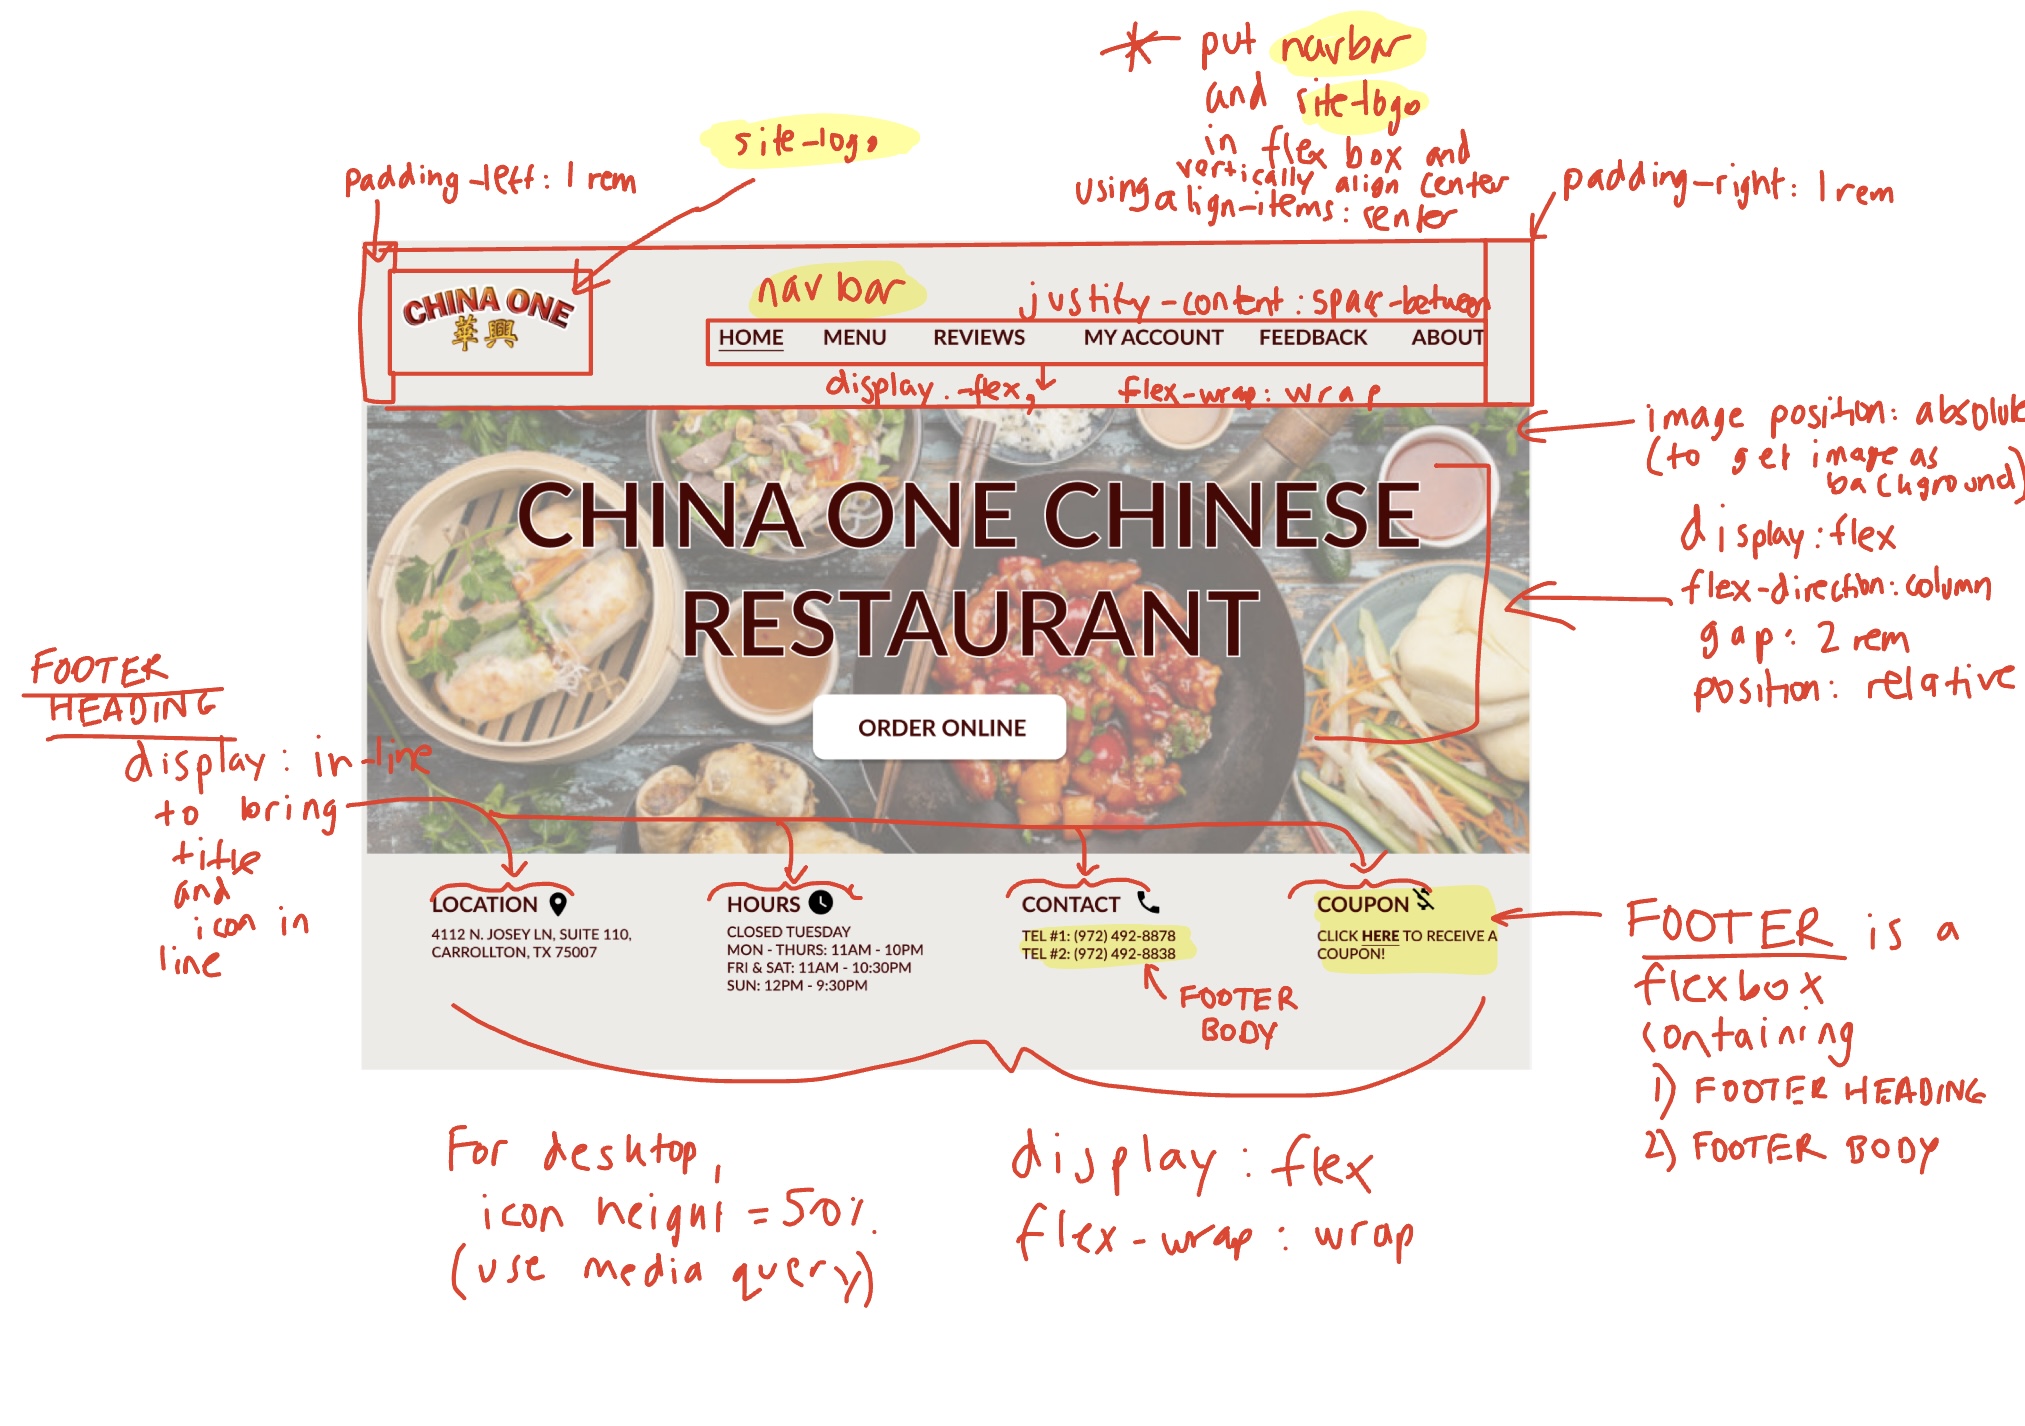 * put navbar
and site-logo
in flex box and
vertically align center
using align-items: center
site-logo
padding-left: 1 rem
padding-right: 1 rem
CHINA ONE
華興
navbar
justify-content: space-between
HOME MENU REVIEWS MY ACCOUNT FEEDBACK ABOUT
display: flex, flex-wrap: wrap
image position: absolute
(to get image as
background)
CHINA ONE CHINESE
RESTAURANT
ORDER ONLINE
display: flex
flex-direction: column
gap: 2 rem
position: relative
FOOTER
HEADING
display: in-line
to bring
title
and
icon in
line
LOCATION
4112 N. JOSEY LN, SUITE 110,
CARROLLTON, TX 75007
HOURS
CLOSED TUESDAY
MON - THURS: 11AM - 10PM
FRI & SAT: 11AM - 10:30PM
SUN: 12PM - 9:30PM
CONTACT
TEL #1: (972) 492-8878
TEL #2: (972) 492-8838
COUPON
CLICK HERE TO RECEIVE A
COUPON!
FOOTER
BODY
FOOTER is a
flexbox
containing
1) FOOTER HEADING
2) FOOTER BODY
For desktop,
icon height = 50%.
(use media query)
display: flex
flex-wrap: wrap